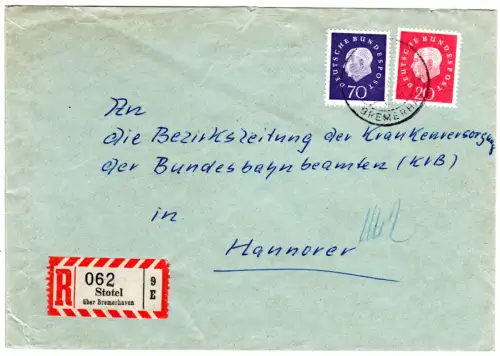 DEUTSCHE BUNDESPOST
70
DEUTSCHE BUNDESPOST
20
BREMERH
An
die Bezirksleitung der Krankenversorgung
der Bundesbahnbeamten (KVB)
in
Hannover
R
062
Stotel
über Bremerhaven
9
E